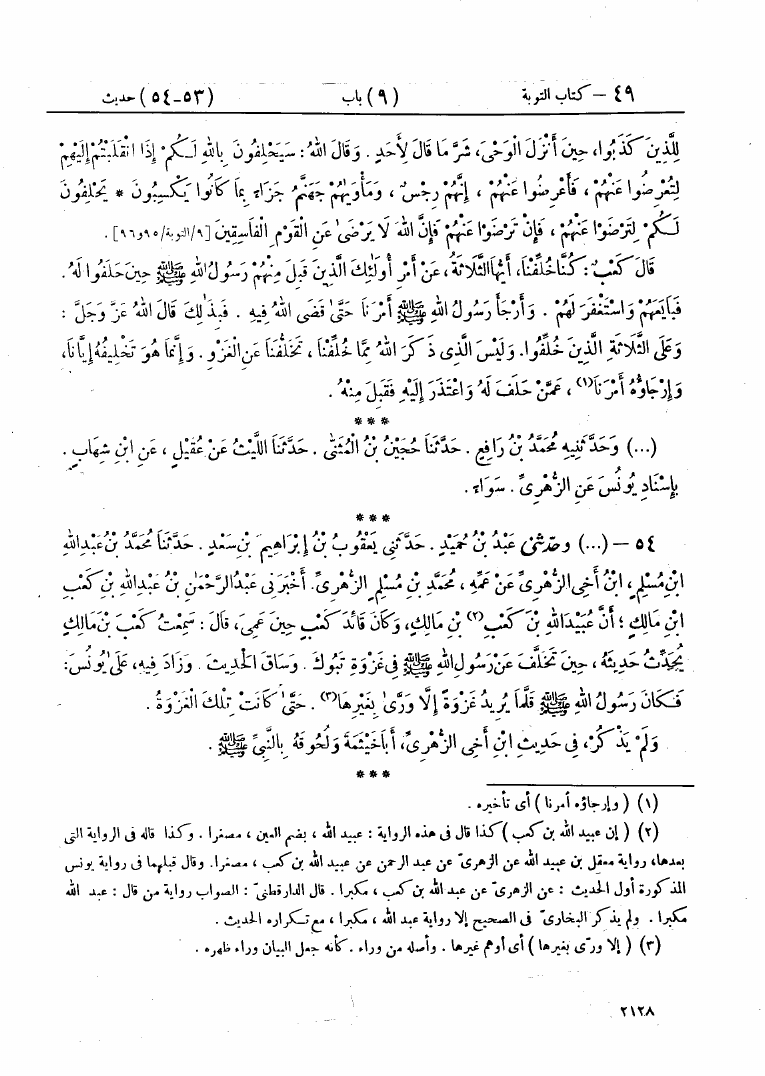 ٤٩ – كتاب التوبة (٩) باب (٥٣-٥٤) حديث
لِلَّذِينَ كَذَبُوا، حِينَ أَنْزَلَ الْوَحْىَ، شَرَّ مَا قَالَ لِأَحَدٍ . وَقَالَ اللهُ : سَيَحْلِفُونَ بِاللهِ لَكُمْ إِذَا انْقَلَبْتُمْ إِلَيْهِمْ
لِتُعْرِضُوا عَنْهُمْ ، فَأَعْرِضُوا عَنْهُمْ ، إِنَّهُمْ رِجْسٌ ، وَمَأْوَيٰهُمْ جَهَنَّمُ جَزَاءً بِمَا كَانُوا يَكْسِبُونَ * يَحْلِفُونَ
لَكُمْ لِتَرْضَوْا عَنْهُمْ ، فَإِنْ تَرْضَوْا عَنْهُمْ فَإِنَّ اللهَ لَا يَرْضَىٰ عَنِ الْقَوْمِ الْفَاسِقِينَ [٩/التوبة/٩٥و٩٦] .
قَالَ كَعْبٌ : كُنَّا خُلِّفْنَا، أَيُّهَا الثَّلَاثَةُ، عَنْ أَمْرِ أُولَٰئِكَ الَّذِينَ قَبِلَ مِنْهُمْ رَسُولُ اللهِ ﷺ حِينَ حَلَفُوا لَهُ .
فَبَايَعَهُمْ وَاسْتَغْفَرَ لَهُمْ . وَأَرْجَأَ رَسُولُ اللهِ ﷺ أَمْرَنَا حَتَّىٰ قَضَى اللهُ فِيهِ . فَبِذَٰلِكَ قَالَ اللهُ عَزَّ وَجَلَّ :
وَعَلَى الثَّلَاثَةِ الَّذِينَ خُلِّفُوا. وَلَيْسَ الَّذِى ذَكَرَ اللهُ مِمَّا خُلِّفْنَا ، تَخَلُّفَنَا عَنِ الْغَزْوِ. وَإِنَّمَا هُوَ تَخْلِيفُهُ إِيَّانَا،
وَإِرْجَاؤُهُ أَمْرَنَا(١) ، عَمَّنْ حَلَفَ لَهُ وَاعْتَذَرَ إِلَيْهِ فَقَبِلَ مِنْهُ .
***
(...) وَحَدَّثَنِيهِ مُحَمَّدُ بْنُ رَافِعٍ . حَدَّثَنَا حُجَيْنُ بْنُ الْمُثَنَّى . حَدَّثَنَا اللَّيْثُ عَنْ عُقَيْلٍ ، عَنِ ابْنِ شِهَابٍ .
بِإِسْنَادِ يُونُسَ عَنِ الزُّهْرِىِّ . سَوَاءً .
***
٥٤ – (...) وحَدَّثَنِى عَبْدُ بْنُ حُمَيْدٍ . حَدَّثَنِى يَعْقُوبُ بْنُ إِبْرَاهِيمَ بْنِ سَعْدٍ . حَدَّثَنَا مُحَمَّدُ بْنُ عَبْدِ اللهِ
ابْنِ مُسْلِمٍ، ابْنُ أَخِى الزُّهْرِىِّ عَنْ عَمِّهِ ، مُحَمَّدِ بْنِ مُسْلِمٍ الزُّهْرِىِّ. أَخْبَرَنِى عَبْدُ الرَّحْمٰنِ بْنُ عَبْدِ اللهِ بْنِ كَعْبِ
ابْنِ مَالِكٍ ؛ أَنَّ عُبَيْدَ اللهِ بْنَ كَعْبِ(٢) بْنِ مَالِكٍ، وَكَانَ قَائِدَ كَعْبٍ حِينَ عَمِىَ، قَالَ : سَمِعْتُ كَعْبَ بْنَ مَالِكٍ
يُحَدِّثُ حَدِيثَهُ، حِينَ تَخَلَّفَ عَنْ رَسُولِ اللهِ ﷺ فِى غَزْوَةِ تَبُوكَ . وَسَاقَ الْحَدِيثَ . وَزَادَ فِيهِ، عَلَىٰ يُونُسَ:
فَكَانَ رَسُولُ اللهِ ﷺ قَلَّمَا يُرِيدُ غَزْوَةً إِلَّا وَرَّىٰ بِغَيْرِهَا(٣) . حَتَّىٰ كَانَتْ تِلْكَ الْغَزْوَةُ .
وَلَمْ يَذْكُرْ، فِى حَدِيثِ ابْنِ أَخِى الزُّهْرِىِّ، أَبَا خَيْثَمَةَ وَلُحُوقَهُ بِالنَّبِىِّ ﷺ .
***
(١) ( وإرجاؤه أمرنا ) أى تأخيره .
(٢) ( إن عبيد الله بن كعب ) كذا قال فى هذه الرواية : عبيد الله ، بضم العين ، مصغرا . وكذا قاله فى الرواية التى
بعدها، رواية معقل بن عبيد الله عن الزهرىّ عن عبد الرحمن عن عبيد الله بن كعب ، مصغرا. وقال قبلهما فى رواية يونس
المذكورة أول الحديث : عن الزهرىّ عن عبد الله بن كعب ، مكبرا . قال الدارقطنىّ : الصواب رواية من قال : عبد الله
مكبرا . ولم يذكر البخارىّ فى الصحيح إلا رواية عبد الله ، مكبرا ، مع تكراره الحديث .
(٣) ( إلا ورّى بغيرها ) أى أوهم غيرها . وأصله من وراء . كأنه جعل البيان وراء ظهره .
٢١٢٨